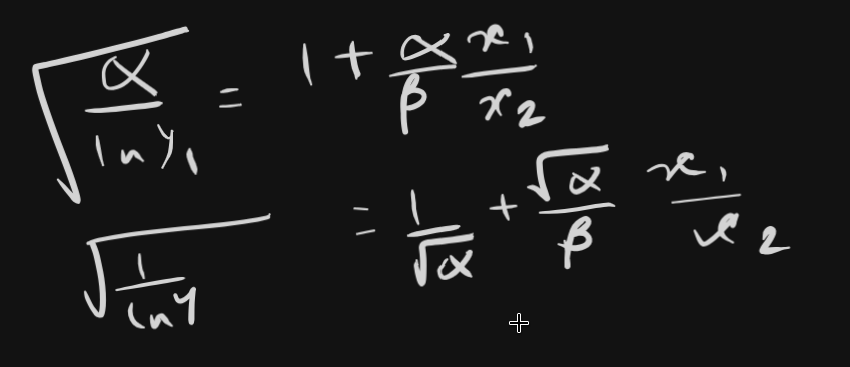 √(α/ln y₁) = 1 + (α/β)(x₁/x₂)
√(1/ln y) = 1/√α + (√α/β)(x₁/x₂)